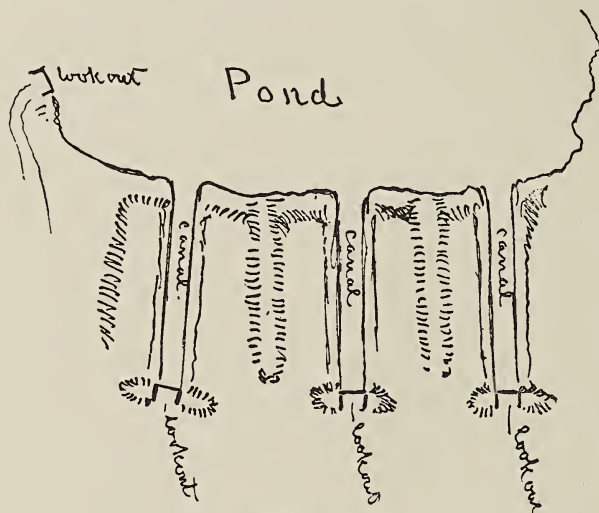 lookout
Pond
canal.
canal
canal
lookout
lookout
lookout